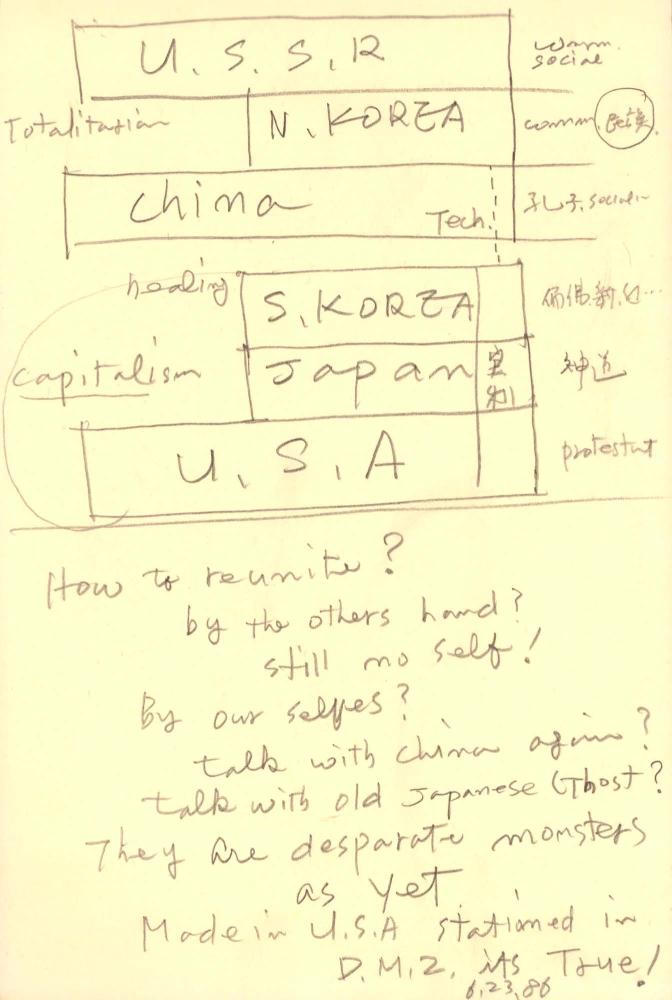 U. S. S. R
warm.
social
Totalitarian
N. KOREA
comm. 民族.
china
Tech.
孔子. social~
healing
S. KOREA
capitalism
Japan
実利
神道
U. S. A
protestnt
How to reunite?
by the others hand?
still no self!
By our selfes?
talk with china again?
talk with old Japanese Ghost?
They are desparate monsters
as yet
Made in U.S.A stationed in
D.M.Z. its True!
6,23,86